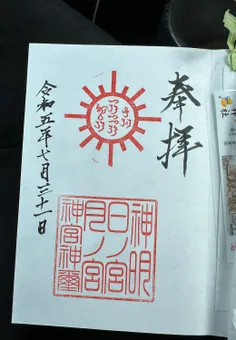 奉拝
神明
日ノ宮
月ノ宮
神宮神璽
令和五年七月三十一日